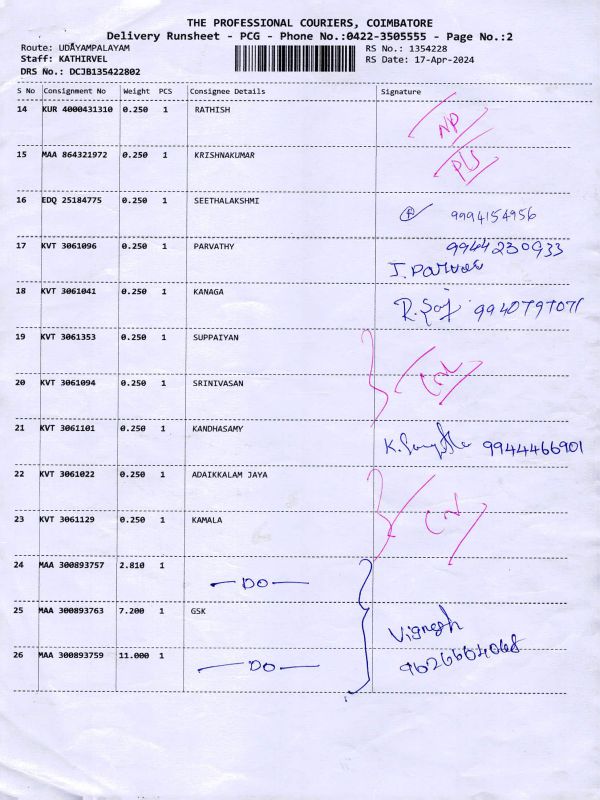 THE PROFESSIONAL COURIERS, COIMBATORE
Delivery Runsheet - PCG - Phone No.:0422-3505555 - Page No.:2
Route: UDAYAMPALAYAM RS No.: 1354228
Staff: KATHIRVEL RS Date: 17-Apr-2024
DRS No.: DCJB135422802
S No Consignment No Weight PCS Consignee Details Signature
14 KUR 4000431310 0.250 1 RATHISH NP
15 MAA 864321972 0.250 1 KRISHNAKUMAR
16 EDQ 25184775 0.250 1 SEETHALAKSHMI 9994154956
17 KVT 3061096 0.250 1 PARVATHY 9944230933
J. Parvas
18 KVT 3061041 0.250 1 KANAGA 9940797071
19 KVT 3061353 0.250 1 SUPPAIYAN
20 KVT 3061094 0.250 1 SRINIVASAN
21 KVT 3061101 0.250 1 KANDHASAMY 9944466901
22 KVT 3061022 0.250 1 ADAIKKALAM JAYA
23 KVT 3061129 0.250 1 KAMALA
24 MAA 300893757 2.810 1 - DO -
25 MAA 300893763 7.200 1 GSK Vignesh
26 MAA 300893759 11.000 1 - DO - 9626664068